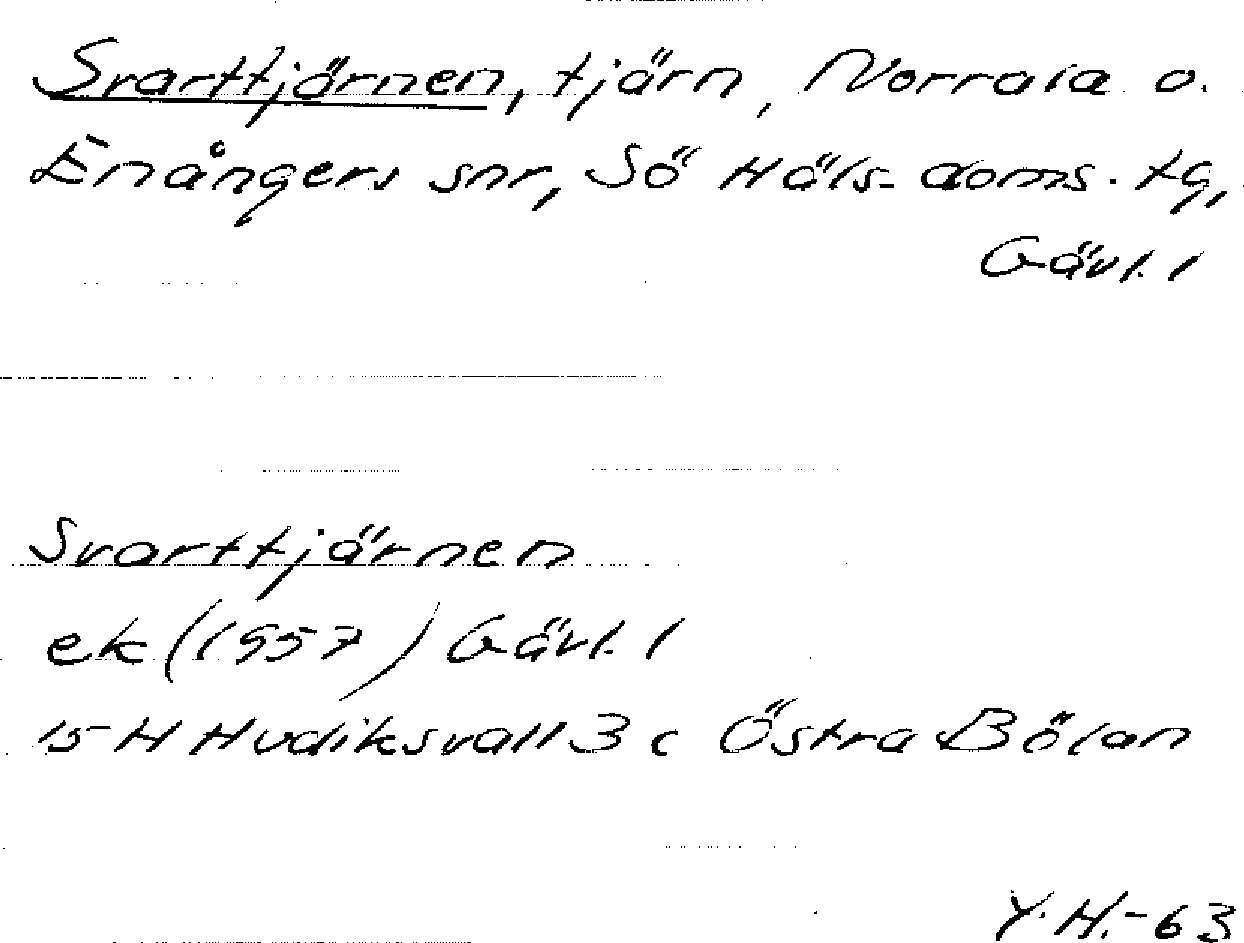 Svarttjärnen, tjärn, Norrala o.
Enångers snr, Sö Häls. doms. tg,
Gävl. l
Svarttjärnen
ek (1957) Gävl. l
15 H Hudiksvall 3 c Östra Bölan
Y.H.-63